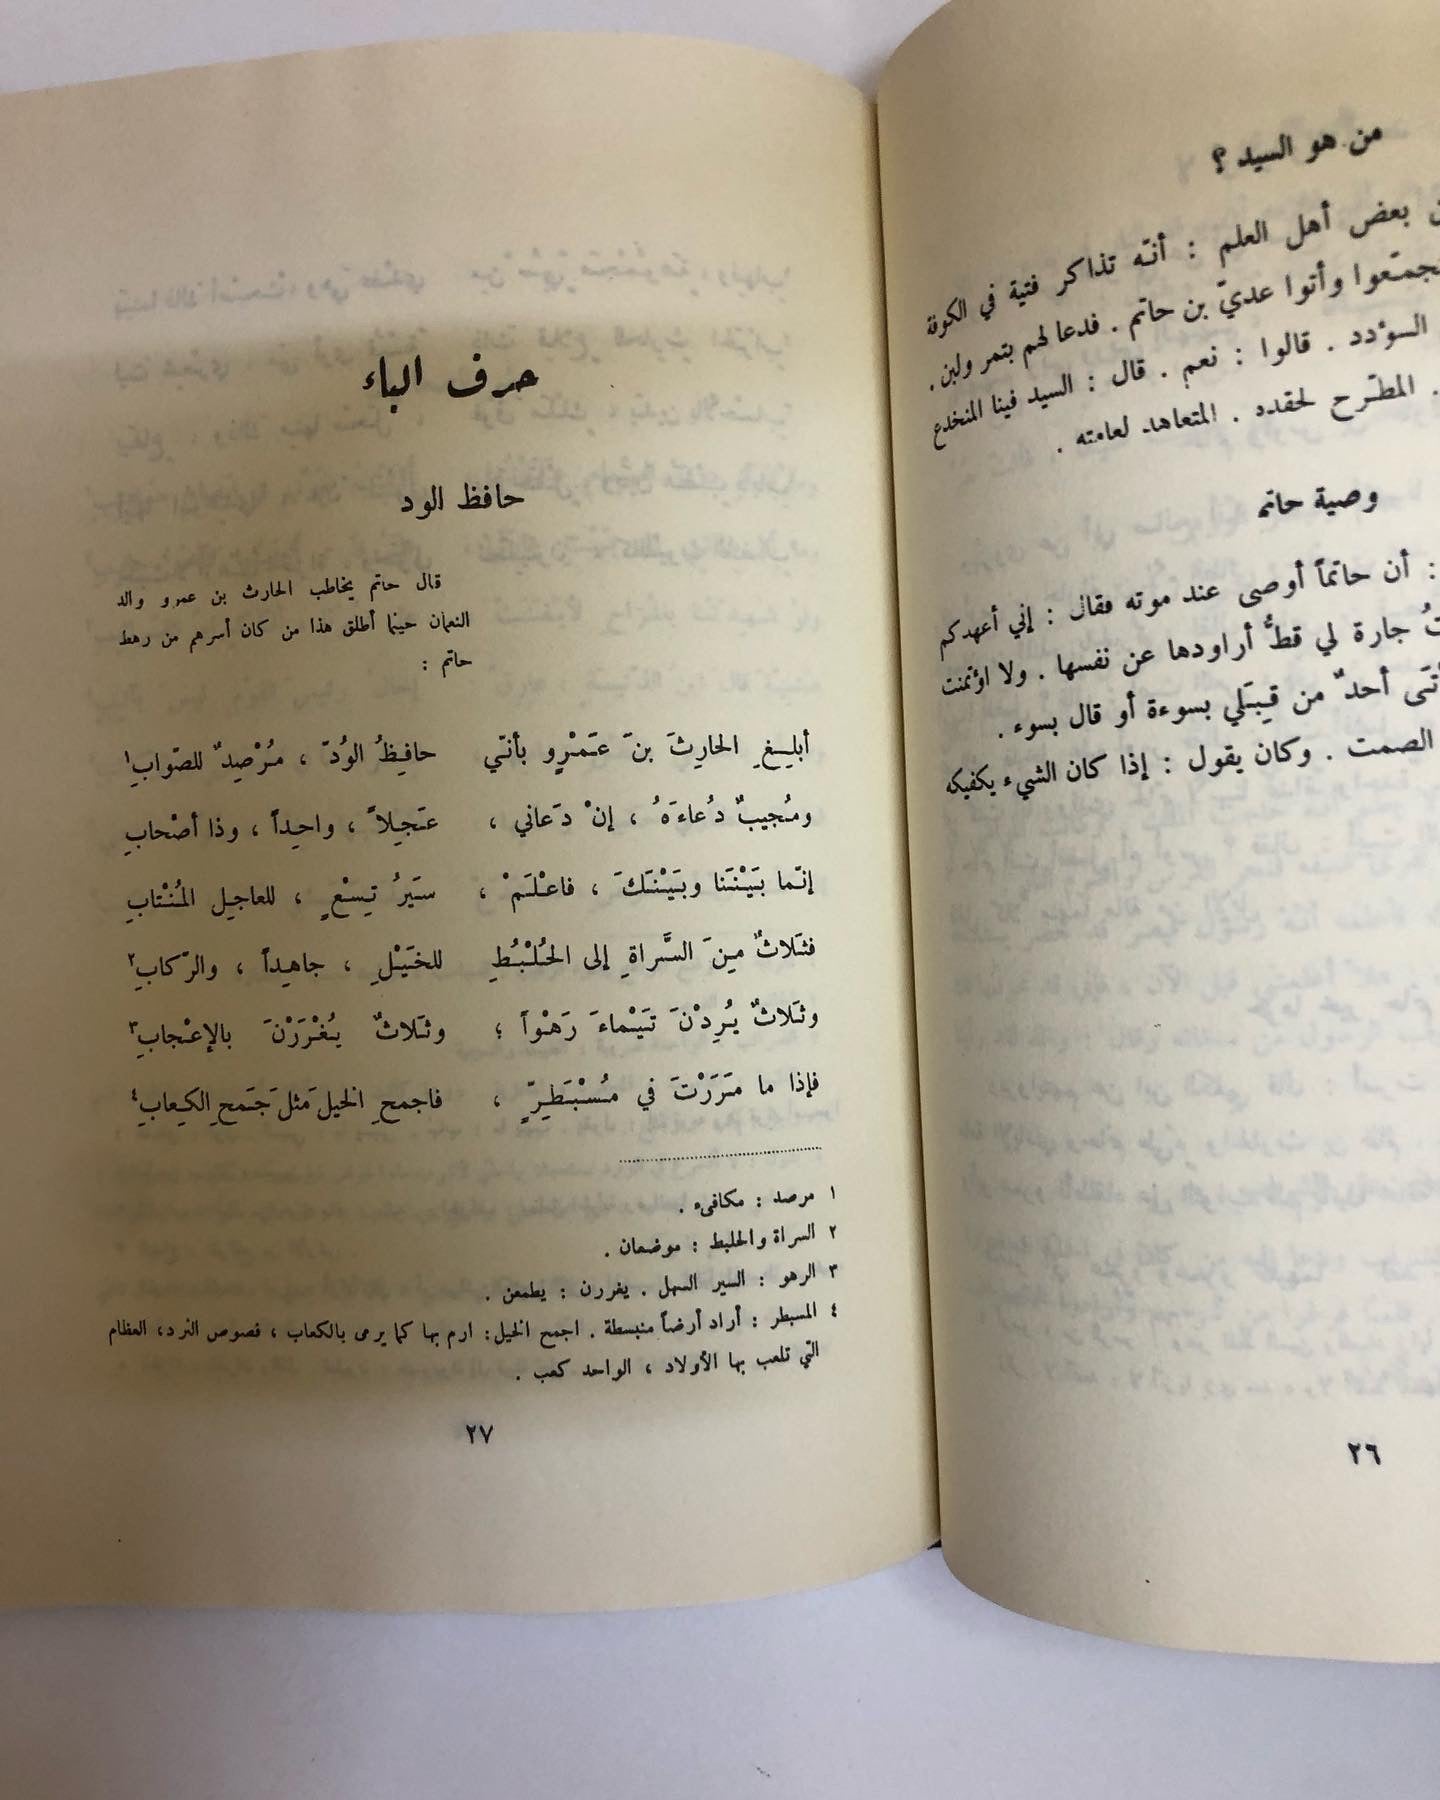 من هو السيد ؟
بعض أهل العلم : أنّه تذاكر فتية في الكوفة
وأتوا عديّ بن حاتم . فدعا لهم بتمر ولبن .
السؤدد . قالوا : نعم . قال : السيد فينا المنخدع
. المطّرح لحقده . المتعاهد لعامته .
وصية حاتم
: أن حاتماً أوصى عند موته فقال : إني أعهدكم
جارة لي قطُّ أراودها عن نفسها . ولا اؤتمنت
أحدٌ من قِبَلي بسوءة أو قال بسوء .
الصمت . وكان يقول : إذا كان الشيء يكفيكه
٢٦
حرف الباء
حافظ الود
قال حاتم يخاطب الحارث بن عمرو والد
النعمان حينما أطلق هذا من كان أسرهم من رهط
حاتم :
أبلِغِ الحارِثَ بنَ عَمْرٍو بأنّي حافِظُ الوُدّ ، مُرْصِدٌ للصّوابِ١
ومُجيبٌ دُعاءَهُ ، إنْ دَعاني ، عَجِلاً ، واحِداً ، وذا أصْحابِ
إنّما بَيْنَنا وبَيْنَكَ ، فاعْلَمْ ، سَيرُ تِسْعٍ ، للعاجِلِ المُنْتابِ
فثَلاثٌ مِنَ السَّراةِ إلى الحُلْبُطِ للخَيْلِ ، جاهِداً ، والرّكابِ٢
وثَلاثٌ يُرِدْنَ تَيْماءَ رَهْواً ؛ وثَلاثٌ يُغْرَرْنَ بالإعْجابِ٣
فإذا ما مَرَرْتَ في مُسْبَطِرٍّ ، فاجمحِ الخيلَ مثلَ جَمحِ الكِعابِ٤
١ مرصد : مكافىء .
٢ السراة والحلبط : موضعان .
٣ الرهو : السير السهل . يغررن : يطمعن .
٤ المسبطر : أراد أرضاً منبسطة . اجمح الخيل : ارم بها كما يرمى بالكعاب ، فصوص النرد ، العظام
التي تلعب بها الأولاد ، الواحد كعب .
٢٧